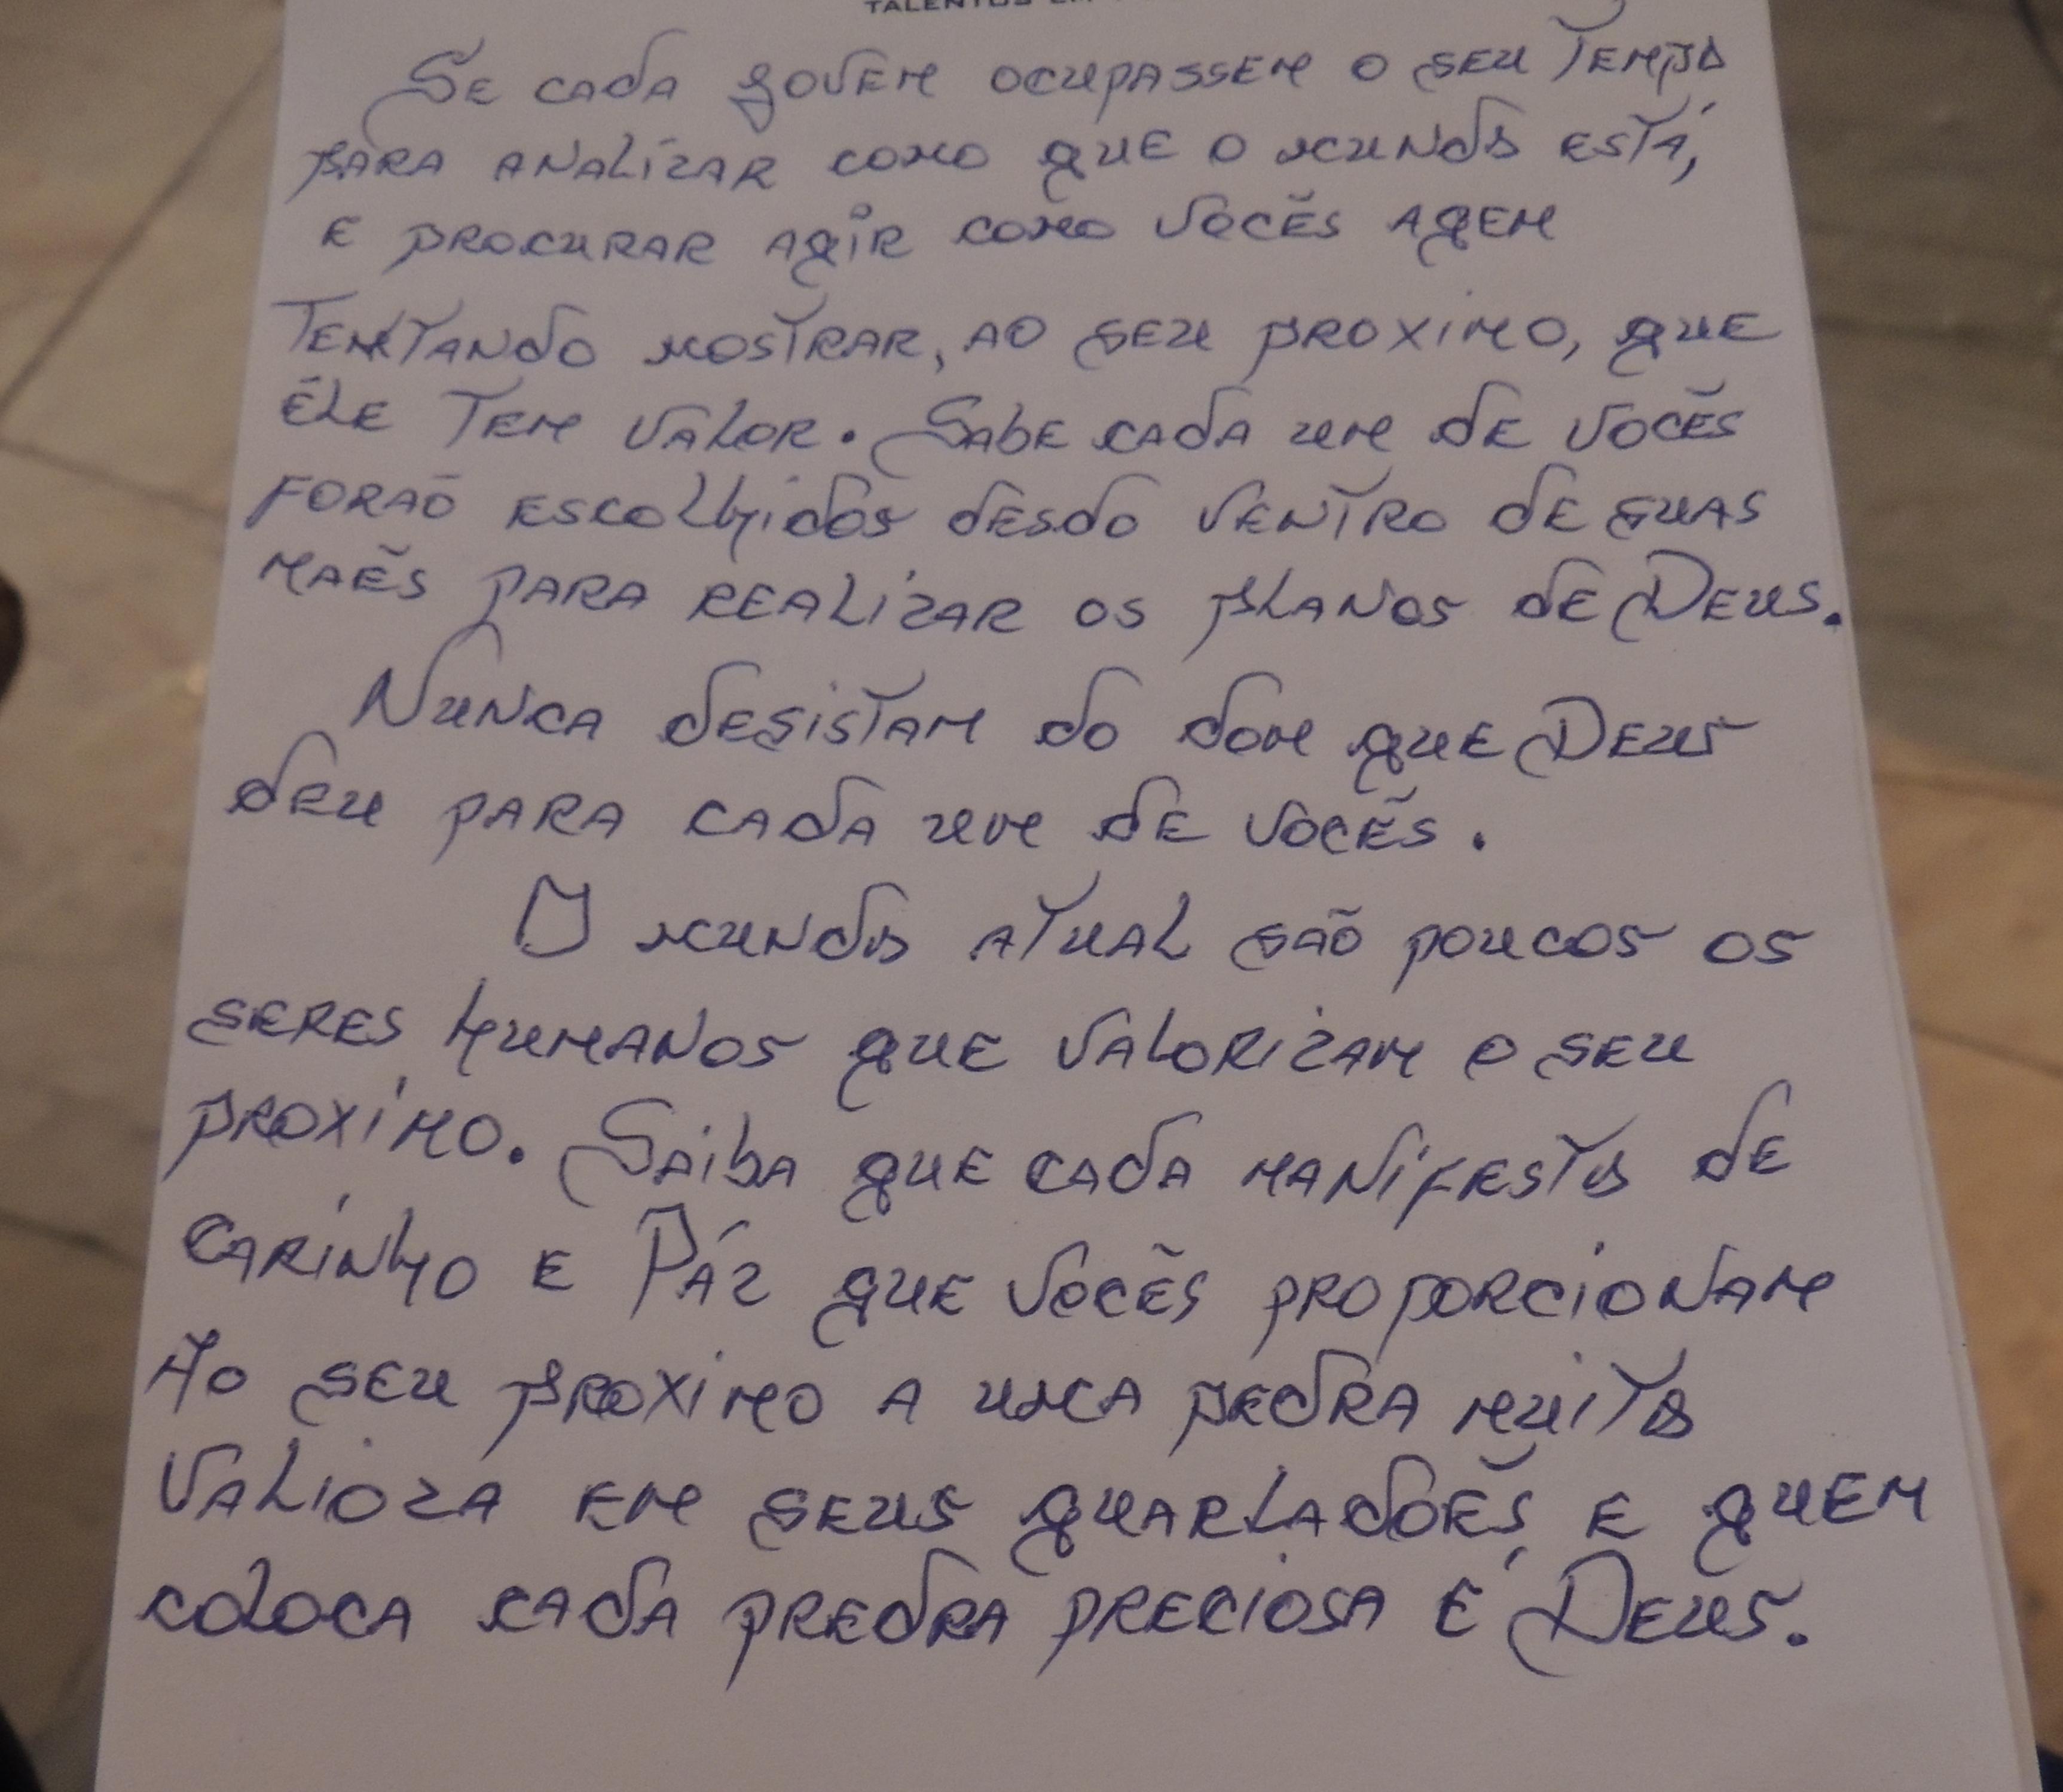 TALENTOS EM
Se cada govem ocupassem o seu tempo
para analizar como que o mundo está,
e procurar agir como vocês agem
Temtando mostrar, ao seu proximo, que
êle tem valor. Sabe cada um de vocês
foraõ escolhidos desdo ventro de suas
maẽs para realizar os planos de Deus.
Nunca desistam do dom que Deus
deu para cada um de vocẽs.
O mundo atual são poucos os
seres humanos que valorizam o seu
proximo. Saiba que cada manifesto de
carinho e Páz que vocẽs proporcionam
Ao seu proximo a uma pedra muito
valioza em seus guarladoẽs, e quem
coloca cada predra preciosa é Deus.